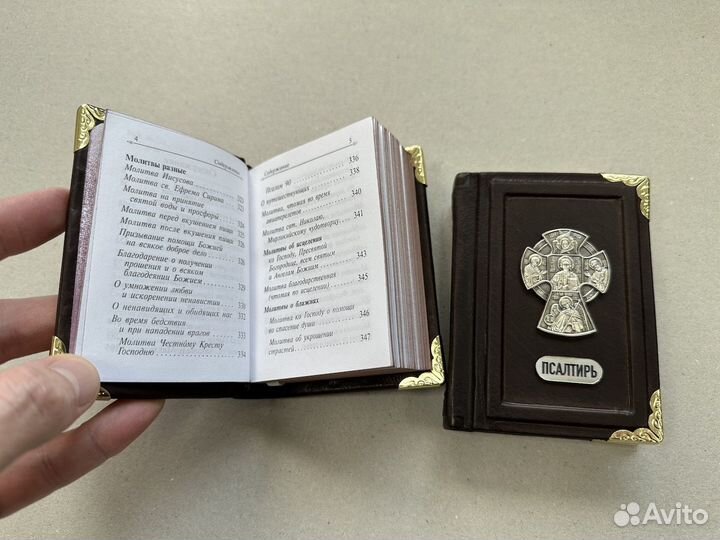 4
Содержание
Молитвы разные
Молитва Иисусова
Молитва св. Ефрема Сирина 321
Молитва на принятие 323
святой воды и просфоры 325
Молитва перед вкушением пищи
Молитва после вкушения пищи
Призывание помощи Божией
на всякое доброе дело
Благодарение о получении
прошения и о всяком
благодеянии Божием 329
О умножении любви
и искоренении ненависти 330
О ненавидящих и обидящих нас
Во время бедствия
и при нападении врагов
Молитва Честному Кресту
Господню 334
Содержание
5
Псалом 90 336
О путешествующих 338
Молитва, чтомая во время
авиаперелетов 340
Молитва свт. Николаю,
Мирликийскому чудотворцу 341
Молитвы об исцелении
ко Господу, Пресвятой
Богородице, всем святым
и Ангелам Божиим 343
Молитва благодарственная
(чтомая по исцелении) 345
Молитвы о ближних
Молитва ко Господу о помощи
во спасение души 346
Молитва об укрощении
страстей 347
ПСАЛТИРЬ
Avito